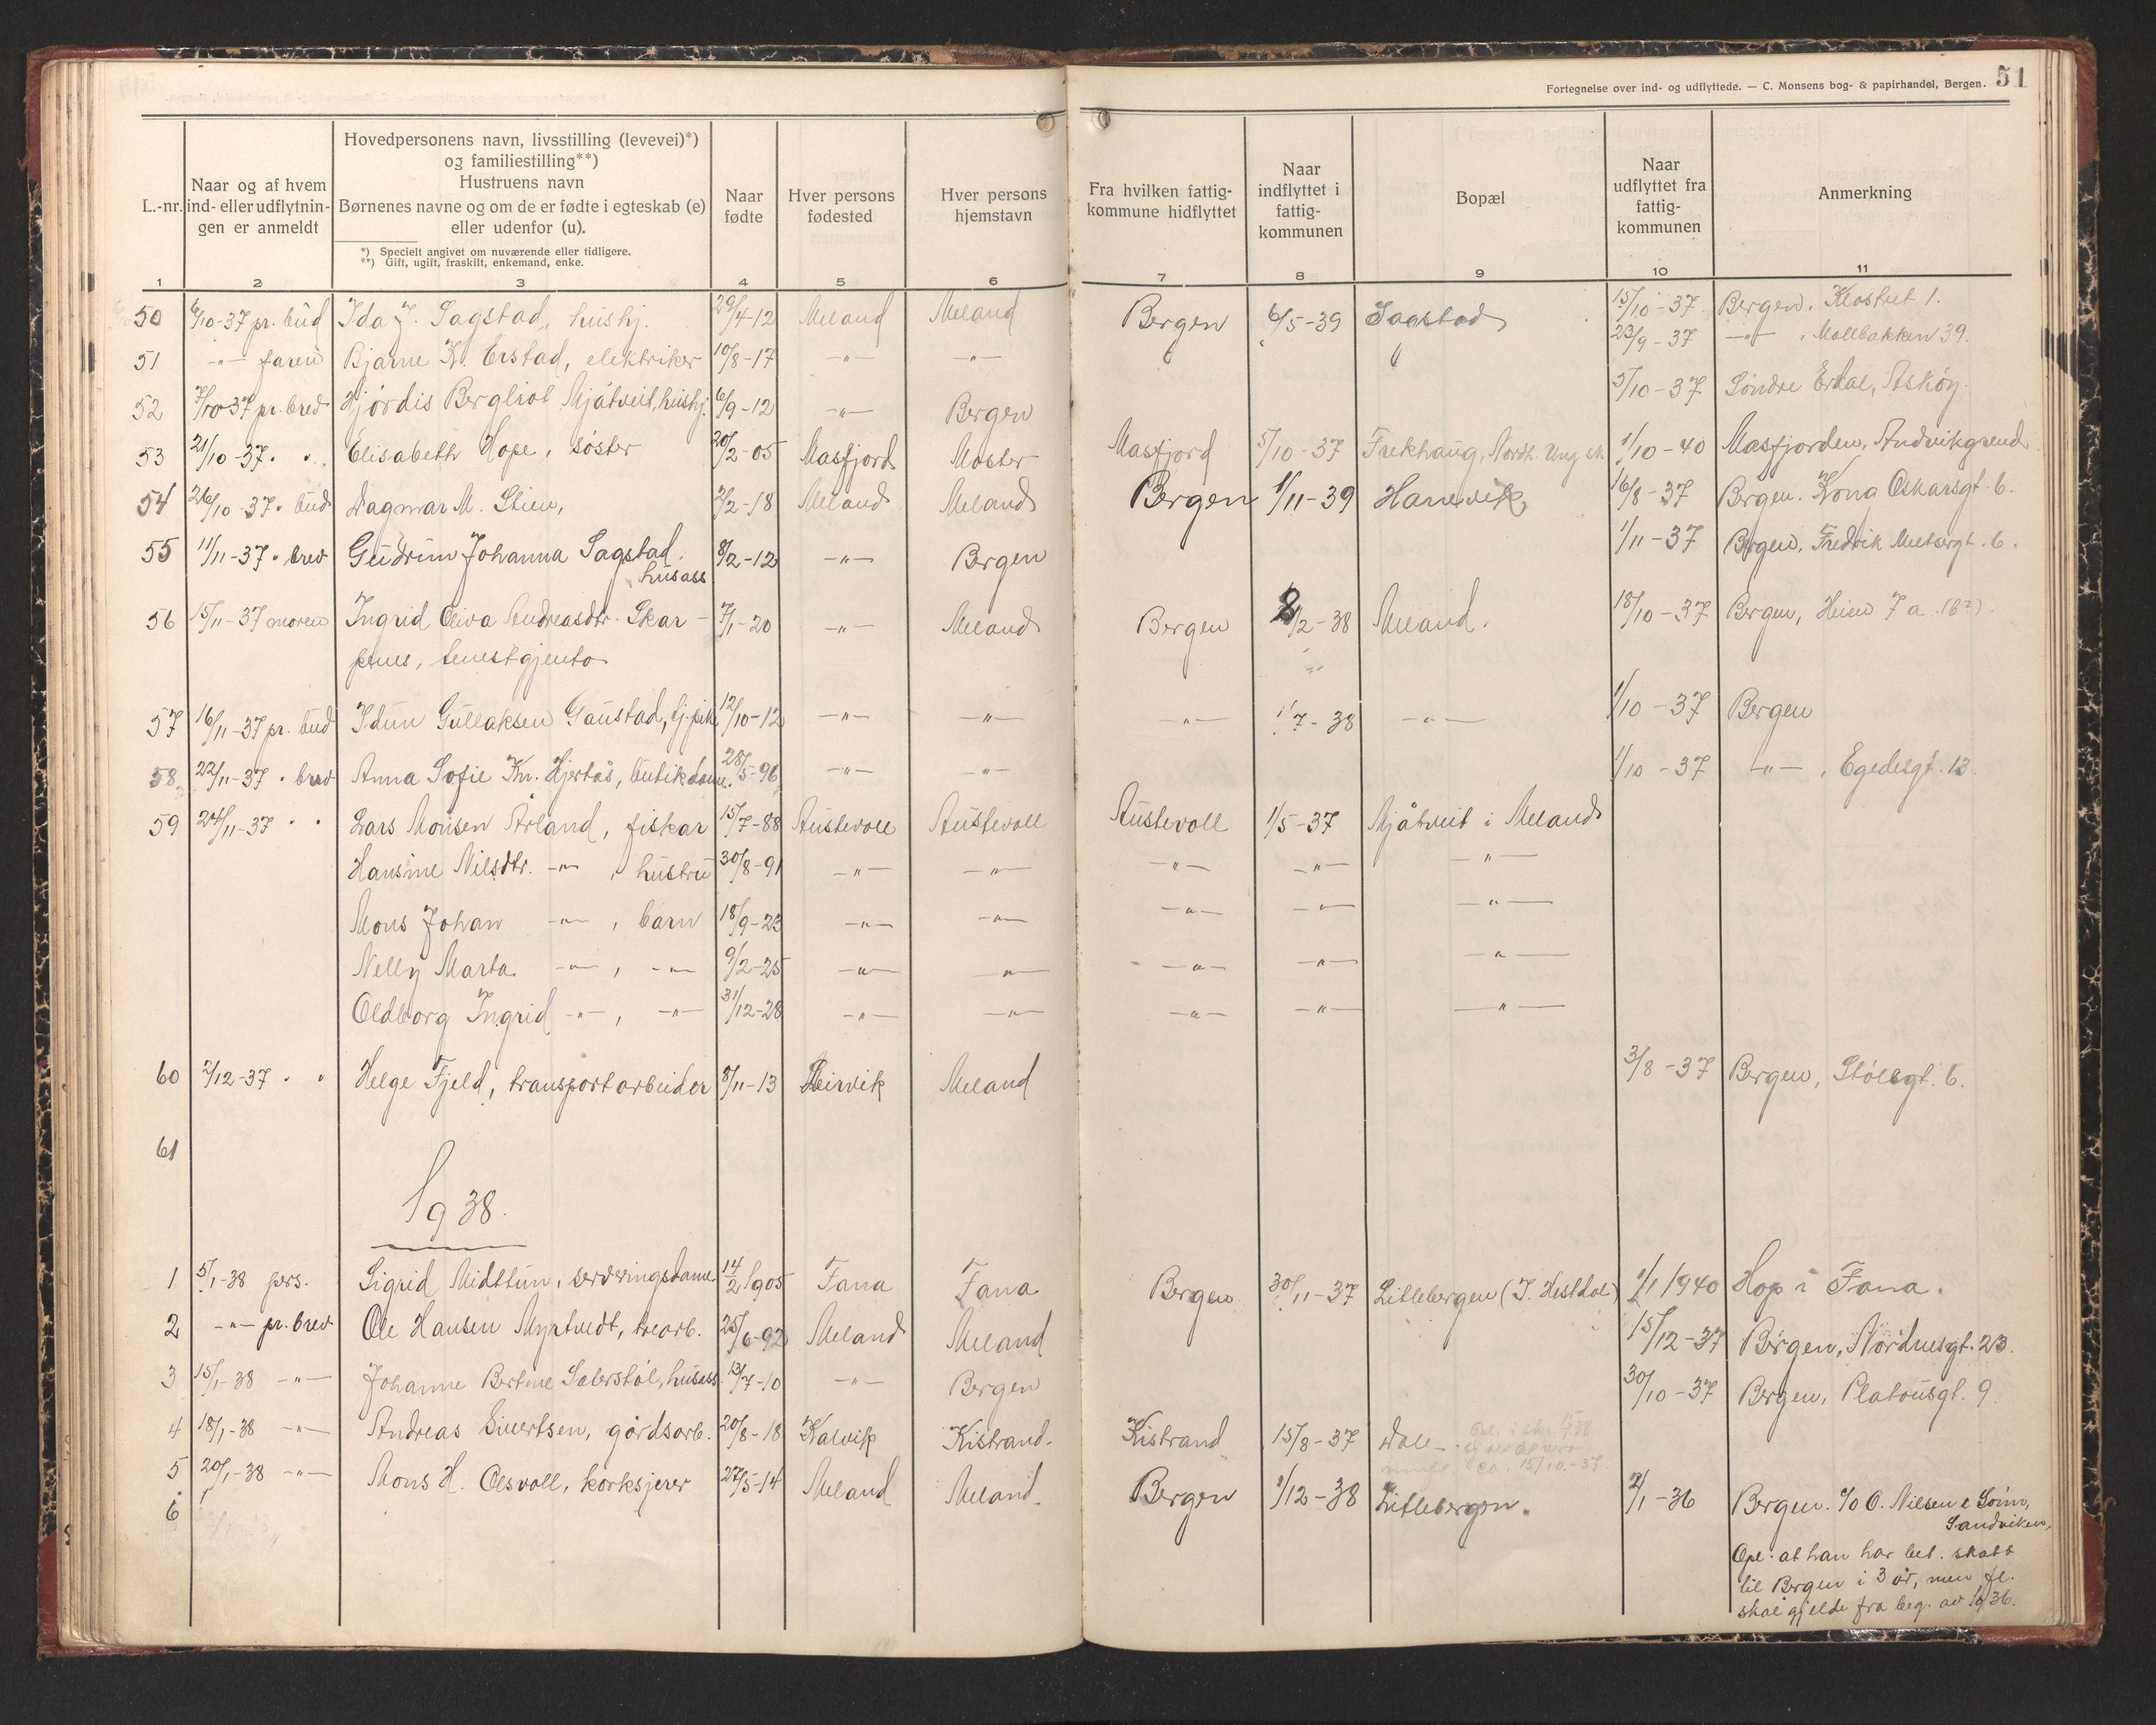 Fortegnelse over ind- og udflyttede. — C. Monsens bog- & papirhandel, Bergen. 51
L.-nr.
Naar og af hvem
ind- eller udflytnin-
gen er anmeldt
Hovedpersonens navn, livsstilling (levevei)*)
og familiestilling**)
Hustruens navn
Børnenes navne og om de er fødte i egteskab (e)
eller udenfor (u).
*) Specielt angivet om nuværende eller tidligere.
**) Gift, ugift, fraskilt, enkemand, enke.
Naar
fødte
Hver persons
fødested
Hver persons
hjemstavn
Fra hvilken fattig-
kommune hidflyttet
Naar
indflyttet i
fattig-
kommunen
Bopæl
Naar
udflyttet fra
fattig-
kommunen
Anmerkning
1 2 3 4 5 6 7 8 9 10 11
50 6/10-37 pr. bud Ida J. Sagstad, hushj. 29/4-12 Meland Meland Bergen 6/5-39 Sagstad 15/10-37 Bergen, Klostret 1.
51 -"- faren Bjarne K. Erstad, elektriker 10/8-17 -"- -"- 23/9-37 -"-, Møllbakken 39.
52 7/10-37 pr. brev Hjørdis Bergliot Mjåtveit, hushj. 6/9-12 -"- Bergen 5/10-37 Søndre Erdal, Askøy
53 21/10-37 " " Elisabeth Hope, søster 20/2-05 Masfjord Moster Masfjord 5/10-37 Frekhaug, Nordh. Ung.sk 1/10-40 Masfjorden, Andvikgrend
54 26/10-37 " bud Dagmar M. Stien, 2/2-18 Meland Meland Bergen 1/11-39 Hanevik 16/8-37 Bergen. Kong Oskarsgt. 6.
55 11/11-37 " brev Gudrun Johanna Sagstad. 8/2-12 -"- Bergen 1/11-37 Bergen, Fredrik Meltzersgt. 6.
husass
56 15/11-37 moren Ingrid Oliva Andreasdtr. Skar- 7/1-20 -"- Meland Bergen /2-38 Meland. 18/10-37 Bergen, Heien 7a.
penes, tenestgjenta
57 16/11-37 pr. bud Idun Gullaksen Gaustad, tj.pik. 12/10-12 -"- -"- -"- 1/7-38 -"- 1/10-37 Bergen
58 22/11-37 " brev Anna Sofie Kn. Hjertås, butikdame. 28/5-96 -"- -"- 1/10-37 -"-, Egedesgt. 13.
59 24/11-37 " " Lars Monsen Årland, fiskar 15/7-88 Austevoll Austevoll Austevoll 1/5-37 Mjåtveit i Meland
Hansine Nilsdtr. -"-, hustru 30/8-91 -"- -"- -"- -"- -"-
Mons Johan -"-, barn 18/9-23 -"- -"- -"- -"- -"-
Nelly Marta -"-, -"- 9/2-25 -"- -"- -"- -"- -"-
Oldborg Ingrid -"-, -"- 31/12-28 -"- -"- -"- -"- -"-
60 2/12-37 " " Helge Fjeld, transportarbeider 8/11-13 Leirvik Meland 3/8-37 Bergen, Stølsgt. 6.
61
1938.
1 5/1-38 pers. Sigrid Midttun, serveringsdame 14/2 1905 Fana Fana Bergen 30/11-37 Litlebergen (J. Hestdal) 1/1 1940 Hop i Fana.
2 -"- pr. brev Ole Hansen Myrtvedt, trearb. 25/6-92 Meland Meland 15/12-37 Bergen, Nordnesgt. 23.
3 15/1-38 -"- Johanne Bertine Sæterstøl, husass 13/7-10 -"- Bergen 30/10-37 Bergen, Platousgt. 9.
4 18/1-38 -"- Andreas Sivertsen, gårdsarb. 20/8-18 Kalvik Kistrand. Kistrand 15/8-37 Dale
ca. 15/10-37.
5 20/1-38 -"- Mons H. Olsvoll, korksjerer 27/5-14 Meland Meland. Bergen 1/12-38 Litlebergen. 2/1-36 Bergen. c/o O. Nilsen & Sønn,
Sandviken,
6
Opl. at han har bet. skatt
til Bergen i 3 år, men fl.
skal gjelde fra beg. av 1936.